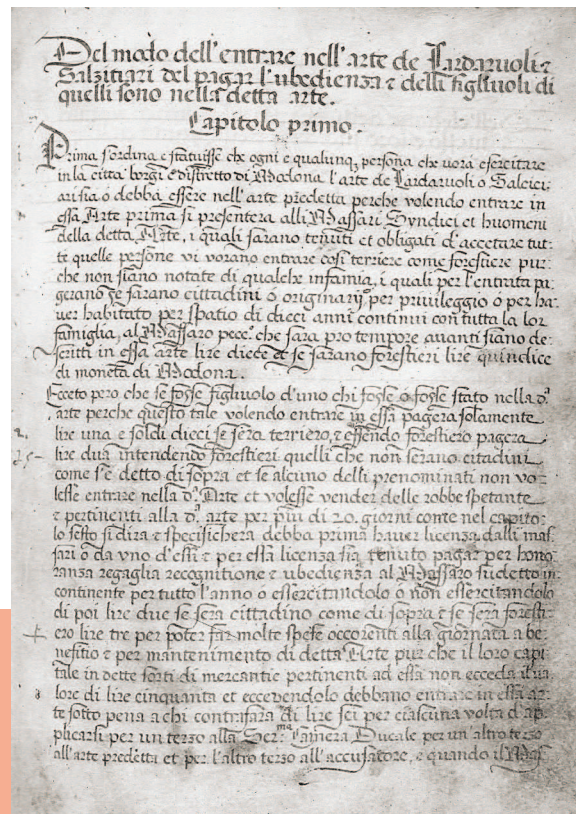 Del modo dell'entrare nell'arte de Lardaruoli e
Salzitiari del pagar l'ubedienza e delli figliuoli di
quelli sono nella detta arte.
Capitolo primo.
Prima s'ordina e statuisse che ogni e qualunq, persona che vorà esercitare
in la città borgi e distretto di Modona l'arte de Lardaruoli o Salcici:
ari sia o debba essere nell'arte predetta perche volendo entrare in
essa Arte prima si presentera alli Massari Syndici et huomeni
della detta Arte, i quali sarano tenuti et obligati d'accetare tut:
te quelle persone vi vorano entrare così terriere come forestiere pur:
che non siano notate di qualche infamia, i quali per l'entrata pa:
gerano se sarano cittadini ò originarij per privileggio ò per ha:
ver habitato per spatio di dieci anni continui con tutta la lor
famiglia, al Massaro pecc. che sara pro tempore avanti siano de:
scritti in essa arte lire diece et se sarano forestieri lire quindice
di moneta di Modona.
Ecceto pero che se fosse figliuolo d'uno chi fosse o fosse stato nella d.ª
arte perche questo tale volendo entrare in essa pagera solamente
lire una e soldi dieci se sera terriero, e essendo forestiero pagera
lire dua intendendo forestieri quelli che non serano citadini
come s'e detto di sopra et se alcuno delli prenominati non vo:
lesse entrare nella d.ª Arte et volesse vender delle robbe spetante
e pertinenti alla d.ª arte per piu di 20. giorni come nel capito:
lo sesto si dira e specifichera debba prima haver licenza dalli mas:
sari ò da uno d'essi e per essa licenza sia tenuito pagar per hono:
ranza regaglia recognitione e ubedienza al Massaro sudetto in:
continente per tutto l'anno ò essercitandolo ò non essercitandolo
di poi lire due se sera cittadino come di sopra e se sera foresti:
ero lire tre per poter far molte spese occorenti alla giornata a be:
nefitio e per mantenimento di detta Arte pur che il loro capi:
tale in dette sorti di mercantie pertinenti ad essa non ecceda il va:
lore di lire cinquanta et eccedendolo debbano entrare in essa ar:
te sotto pena a chi contrafara di lire sei per ciascuna volta d'ap:
plicarsi per un terzo alla Ser.ma Camera Ducale per un altro terzo
all'arte predetta et per l'altro terzo all'accusatore, e quando il Mas: